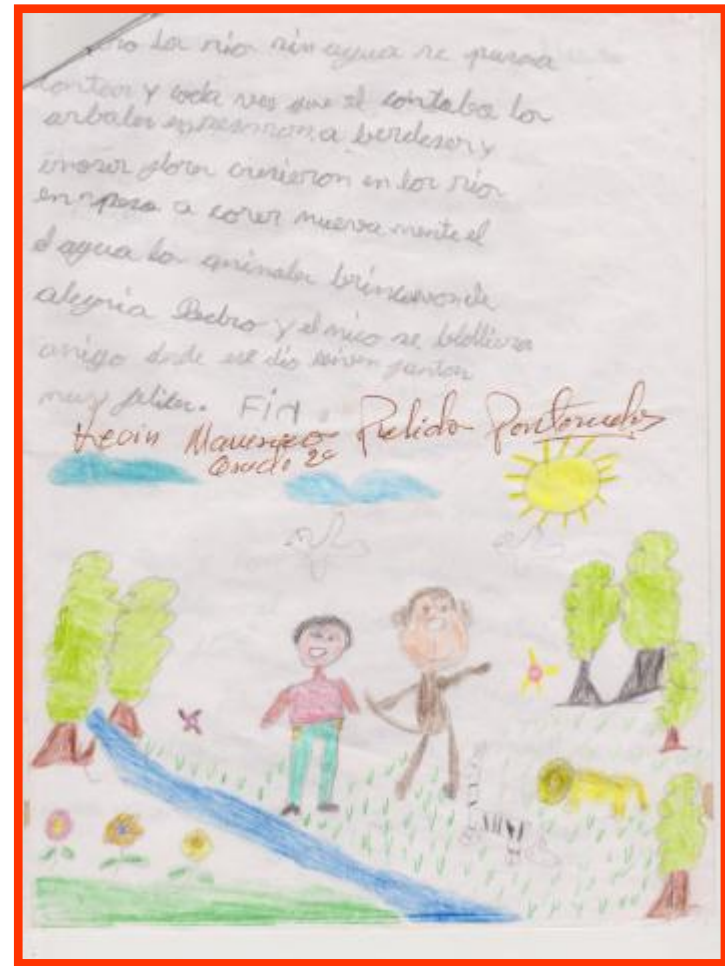 los rios sin agua se puso a
contar y coda ves que el contaba los
arboles enpesaron a berdeser y
flores cresieron en los rios
enpeso a corer nueva mente el
el agua los animales brincavon de
alegria Pedro y el mico se
amigo desde ese dia viven juntos
muy felises. FIN.
Kevin Mauricio Pulido
Grado 2º